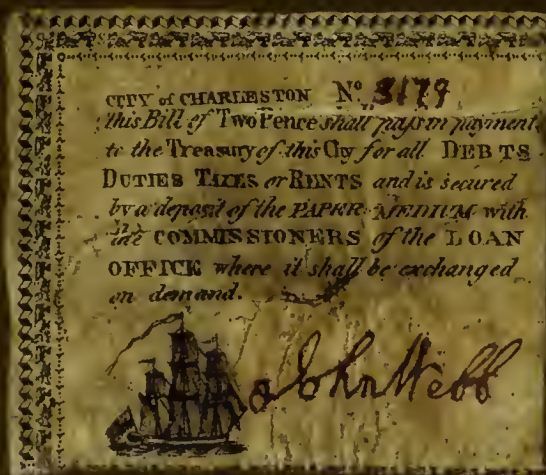 CITY of CHARLESTON Nº 3179
this Bill of Two Pence shall pass in payment
to the Treasury of this City for all DEBTS
DUTIES TAXES or RENTS and is secured
by a deposit of the PAPER MEDIUM with
the COMMISSIONERS of the LOAN
OFFICE where it shall be exchanged
on demand.
John Webb